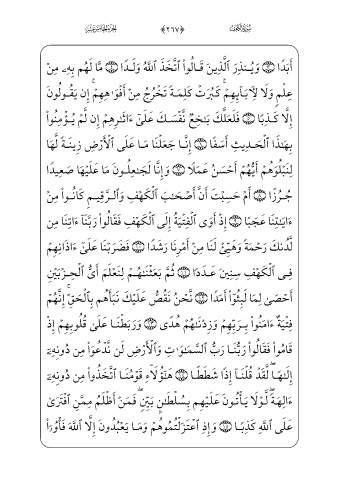 سورة الكهف ﴿٢٦٧﴾ الجزء الخامس عشر
أَبَدًا ۝ وَيُنذِرَ ٱلَّذِينَ قَالُوا۟ ٱتَّخَذَ ٱللَّهُ وَلَدًا ۝ مَّا لَهُم بِهِۦ مِنْ
عِلْمٍ وَلَا لِـَٔابَآئِهِمْ ۚ كَبُرَتْ كَلِمَةً تَخْرُجُ مِنْ أَفْوَٰهِهِمْ ۚ إِن يَقُولُونَ
إِلَّا كَذِبًا ۝ فَلَعَلَّكَ بَـٰخِعٌ نَّفْسَكَ عَلَىٰٓ ءَاثَـٰرِهِمْ إِن لَّمْ يُؤْمِنُوا۟
بِهَـٰذَا ٱلْحَدِيثِ أَسَفًا ۝ إِنَّا جَعَلْنَا مَا عَلَى ٱلْأَرْضِ زِينَةً لَّهَا
لِنَبْلُوَهُمْ أَيُّهُمْ أَحْسَنُ عَمَلًا ۝ وَإِنَّا لَجَـٰعِلُونَ مَا عَلَيْهَا صَعِيدًا
جُرُزًا ۝ أَمْ حَسِبْتَ أَنَّ أَصْحَـٰبَ ٱلْكَهْفِ وَٱلرَّقِيمِ كَانُوا۟ مِنْ
ءَايَـٰتِنَا عَجَبًا ۝ إِذْ أَوَى ٱلْفِتْيَةُ إِلَى ٱلْكَهْفِ فَقَالُوا۟ رَبَّنَآ ءَاتِنَا مِن
لَّدُنكَ رَحْمَةً وَهَيِّئْ لَنَا مِنْ أَمْرِنَا رَشَدًا ۝ فَضَرَبْنَا عَلَىٰٓ ءَاذَانِهِمْ
فِى ٱلْكَهْفِ سِنِينَ عَدَدًا ۝ ثُمَّ بَعَثْنَـٰهُمْ لِنَعْلَمَ أَىُّ ٱلْحِزْبَيْنِ
أَحْصَىٰ لِمَا لَبِثُوٓا۟ أَمَدًا ۝ نَّحْنُ نَقُصُّ عَلَيْكَ نَبَأَهُم بِٱلْحَقِّ ۚ إِنَّهُمْ
فِتْيَةٌ ءَامَنُوا۟ بِرَبِّهِمْ وَزِدْنَـٰهُمْ هُدًى ۝ وَرَبَطْنَا عَلَىٰ قُلُوبِهِمْ إِذْ
قَامُوا۟ فَقَالُوا۟ رَبُّنَا رَبُّ ٱلسَّمَـٰوَٰتِ وَٱلْأَرْضِ لَن نَّدْعُوَا۟ مِن دُونِهِۦٓ
إِلَـٰهًا ۖ لَّقَدْ قُلْنَآ إِذًا شَطَطًا ۝ هَـٰٓؤُلَآءِ قَوْمُنَا ٱتَّخَذُوا۟ مِن دُونِهِۦٓ
ءَالِهَةً ۖ لَّوْلَا يَأْتُونَ عَلَيْهِم بِسُلْطَـٰنٍۭ بَيِّنٍ ۖ فَمَنْ أَظْلَمُ مِمَّنِ ٱفْتَرَىٰ
عَلَى ٱللَّهِ كَذِبًا ۝ وَإِذِ ٱعْتَزَلْتُمُوهُمْ وَمَا يَعْبُدُونَ إِلَّا ٱللَّهَ فَأْوُۥٓا۟